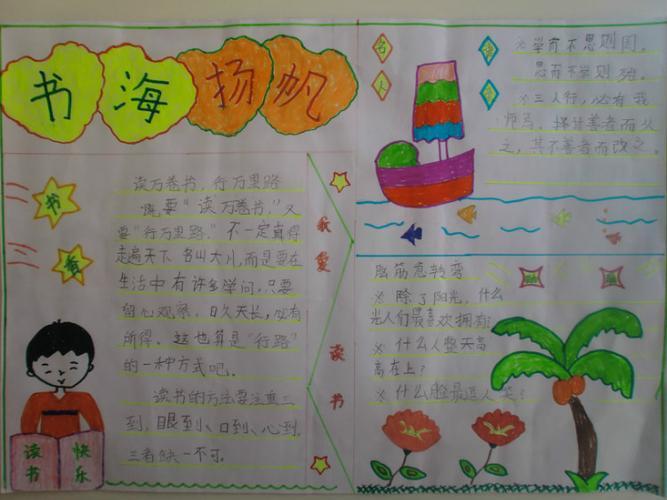 书海扬帆
书
香
读万卷书，行万里路
既要“读万卷书，”又
要“行万里路，”不一定真得
走遍天下 名山大川，而是要在
生活中有许多学问，只要
留心观察，日久天长，必有
所得。这也算是“行路”
的一种方式吧。
读书的方法要注重三
到，眼到、口到、心到。
三者缺一不可。
我爱读书
读书
快乐
名人
※学而不思则罔，
思而不学则殆。
※三人行，必有我
师焉，择其善者而从
之，其不善者而改之。
脑筋急转弯
※除了阳光，什么
光人们最喜欢拥有？
※什么人整天高
高在上？
※什么脸最逗人笑？